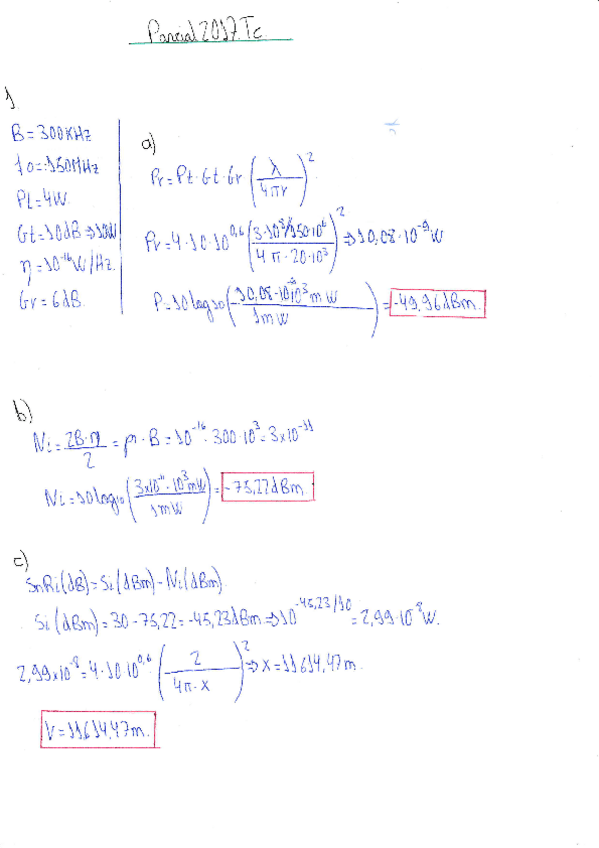 Parcial 2017. Tc
1
B = 300KHz
fo = 150MHz
Pt = 4W
Gt = 10dB ⇒ 10W
η = 10^-16 W/Hz.
Gr = 6dB
a)
Pr = Pt · Gt · Gr (λ / 4πr)^2
Pr = 4 · 10 · 10^0,6 (3·10^8/150·10^6 / 4π · 20·10^3)^2 ⇒ 10,08 · 10^-9 W
P = 10log10 (10,08 · 10^-9 10^3 mW / 1mW) = -49,96dBm.
b)
Ni = 2B·η / 2 = η · B = 10^-16 · 300·10^3 = 3x10^-11
Ni = 10log10 (3x10^-11 · 10^3 mW / 1mW) = -75,22dBm.
c)
SnRi(dB) = Si(dBm) - Ni(dBm)
Si(dBm) = 30 - 75,22 = -45,23dBm ⇒ 10^-45,23/10 = 2,99·10^-8 W.
2,99x10^-8 = 4 · 10 · 10^0,6 · (2 / 4π · x)^2 ⇒ x = 11614,47m.
V = 11614,47m.